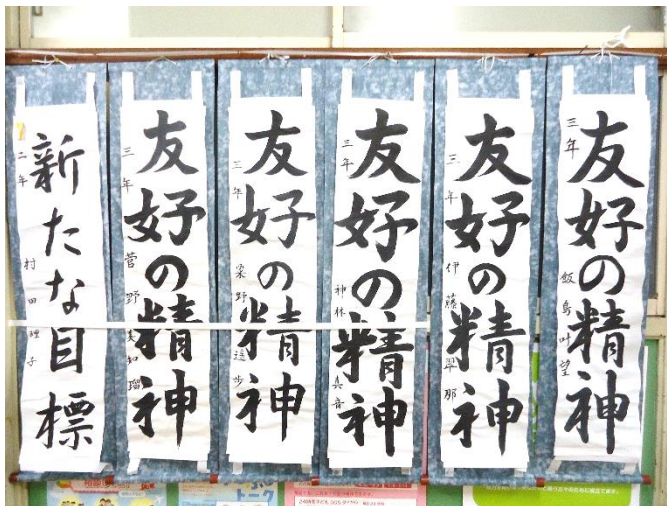 友好の精神
三年 飯島叶望
友好の精神
三年 伊藤翠那
友好の精神
三年 神林真音
友好の精神
三年 栗野瑶歩
友好の精神
三年 菅野美知瑠
新たな目標
二年 村田理子
トーク